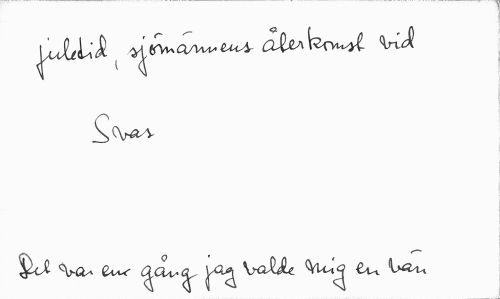 juletid, sjömännens återkomst vid
Svas
Det var en gång jag valde mig en vän